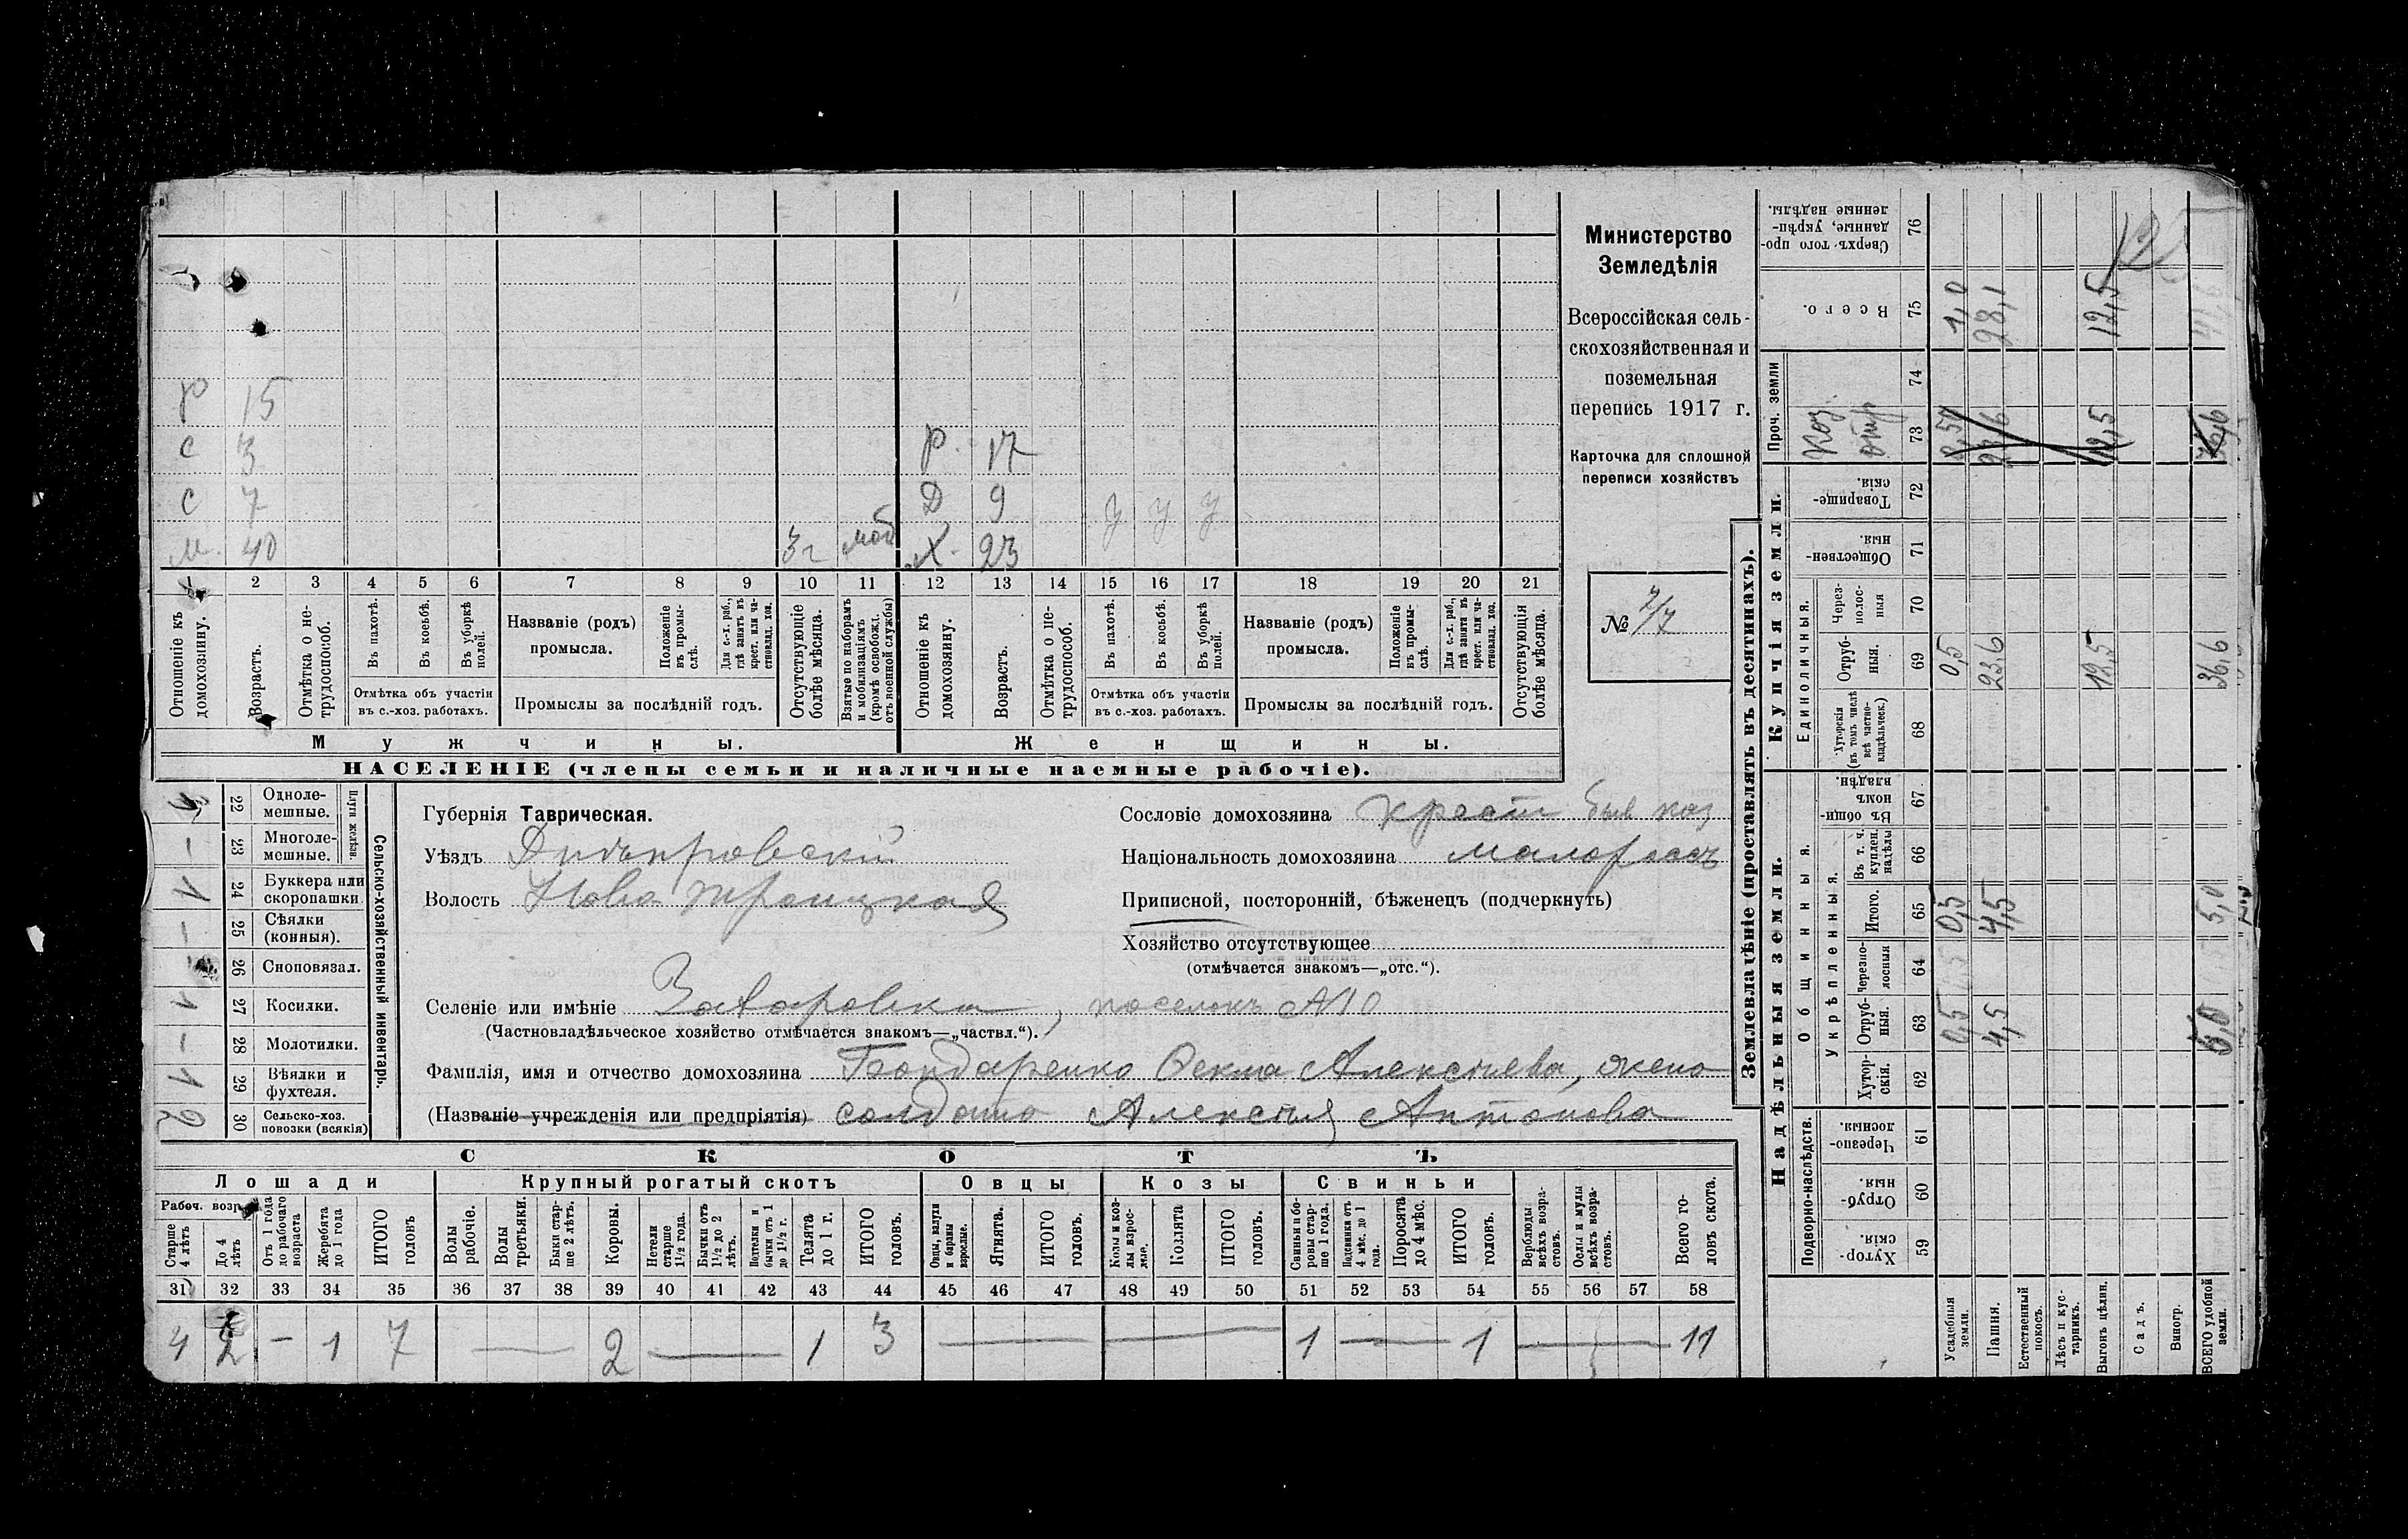 Министерство
Земледѣлія
Всероссійская сель-
скохозяйственная и
поземельная
перепись 1917 г.
Карточка для сплошной
переписи хозяйствъ
№ 7/7
Р 15
С 3
Р. 17
С 7
Д 9 У У У
М. 40 3 г моб Х. 23
1 2 3 4 5 6 7 8 9 10 11 12 13 14 15 16 17 18 19 20 21
Отношеніе къ домохозяину.
Возрастъ.
Отмѣтка о не-трудоспособ.
Въ пахотѣ.
Въ косьбѣ.
Въ уборкѣ полей.
Отмѣтка объ участіи
въ с.-хоз. работахъ.
Названіе (родъ)
промысла.
Положеніе въ промы-слѣ.
Для с.-х. раб., гдѣ занятъ въ крест. или ча-стновлад. хоз.
Промыслы за послѣдній годъ.
Отсутствующіе болѣе мѣсяца.
Взятые по наборамъ и мобилизаціямъ (кромѣ освобожд. отъ военной службы)
Отношеніе къ домохозяину.
Возрастъ.
Отмѣтка о не-трудоспособ.
Въ пахотѣ.
Въ косьбѣ.
Въ уборкѣ полей.
Отмѣтка объ участіи
въ с.-хоз. работахъ.
Названіе (родъ)
промысла.
Положеніе въ промы-слѣ.
Для с.-х. раб., гдѣ занята въ крест. или ча-стновлад. хоз.
Промыслы за послѣдній годъ.
Отсутствующія болѣе мѣсяца.
Мужчины. Женщины.
НАСЕЛЕНІЕ (члены семьи и наличные наемные рабочіе).
Сельско-хозяйственный инвентарь.
Плуги желѣзн.
22 Однолемешные.
— 23 Многолемешные.
1 24 Буккера или скоропашки
— 25 Сѣялки (конныя).
— 26 Сноповязал.
1 27 Косилки.
— 28 Молотилки.
1 29 Вѣялки и фухтеля.
2 30 Сельско-хоз. повозки (всякія)
Губернія Таврическая.
Уѣздъ Днѣпровскій
Волость Ново Троицкая
Селеніе или имѣніе Захаровка, поселокъ №10
(Частновладѣльческое хозяйство отмѣчается знакомъ—„частвл.“).
Фамилія, имя и отчество домохозяина Бондаренко Фекла Алексѣева, жена
(Названіе учрежденія или предпріятія) солдата Алексѣя Антонова
Сословіе домохозяина крест быв каз
Національность домохозяина малороссъ
Приписной, посторонній, бѣженецъ (подчеркнуть)
Хозяйство отсутствующее
(отмѣчается знакомъ—„отс.“).
СКОТЪ
Лошади Крупный рогатый скотъ Овцы Козы Свиньи
Рабоч. возр.
Старше 4 лѣтъ
До 4 лѣтъ
Отъ 1 года до рабочаго возраста
Жеребята до 1 года
ИТОГО головъ
Волы рабочіе.
Волы третьяки.
Быки стар-ше 2 лѣтъ.
Коровы.
Нетели старше 1½ года.
Бычки отъ 1½ до 2 лѣтъ.
Подтелки и бычки отъ 1 до 1½ г.
Телята до 1 г.
ИТОГО головъ.
Овцы, валухи и бараны взрослые.
Ягнята.
ИТОГО головъ.
Козлы и козы взрослые.
Козлята
ИТОГО головъ.
Свиньи и бо-ровы стар-ше 1 года.
Подсвинки отъ 4 мѣс. до 1 года.
Поросята до 4 мѣс.
ИТОГО головъ.
Верблюды всѣхъ возра-стовъ.
Ослы и мулы всѣхъ возра-стовъ.
Всего го-ловъ скота.
31 32 33 34 35 36 37 38 39 40 41 42 43 44 45 46 47 48 49 50 51 52 53 54 55 56 57 58
4 2 — 1 7 — 2 — 1 3 — — 1 — 1 — 11
Землевладѣніе (проставлять въ десятинахъ).
Надѣльныя земли. Купчія земли. Проч. земли
Подворно-наслѣдств.
Общинныя.
Укрѣпленныя.
Единоличныя.
Хутор-скія. 59
Отруб-ныя. 60
Черезпо-лосныя 61
Хутор-скія. 62
Отруб-ныя. 63
Черезпо-лосныя 64
Итого. 65
Въ т. ч. куплен. надѣлы 66
Въ общи-номъ владѣн. 67
Хуторскія (въ томъ числѣ всѣ частно-владѣльческ.) 68
Отруб-ныя. 69
Через-полос-ныя 70
Обществен-ныя. 71
Товарище-скія. 72
Каз. отр 73
74
Всего. 75
Сверхъ того про-данные, укрѣп-ленные надѣлы. 76
Усадебныя земли. 0,5 0,5 0,5 1,0
Пашня. 4,5 4,5 23,6 28,1
Естественный покосъ.
Лѣсъ и кус-тарникъ.
Выгонъ цѣлин. 12,5 12,5 12,5
Садъ.
Виногр.
ВСЕГО удобной земли. 5,0 5,0 36,6 41,6